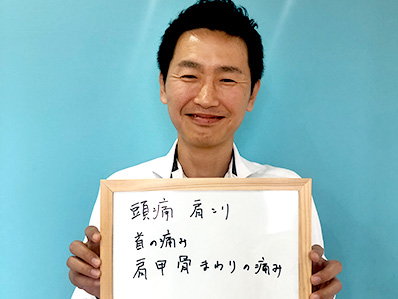 頭痛 肩こり
首の痛み
肩甲骨まわりの痛み